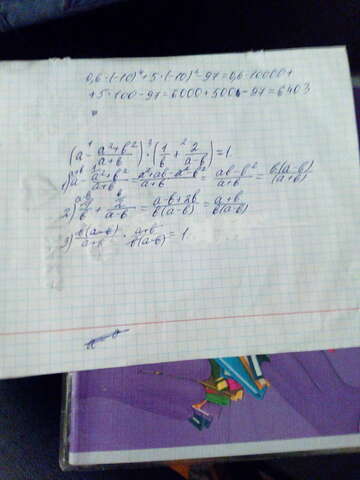 0,6·(-10)⁴+5·(-10)²-97=0,6·10000+
+5·100-97=6000+500-97=6403
(a - (a²+b²)/(a+b))·(1/b + 2/(a-b))=1
1) a - (a²+b²)/(a+b) = (a²+ab-a²-b²)/(a+b) = (ab-b²)/(a+b) = b(a-b)/(a+b)
2) 1/b + 2/(a-b) = (a-b+2b)/(b(a-b)) = (a+b)/(b(a-b))
3) b(a-b)/(a+b) · (a+b)/(b(a-b)) = 1